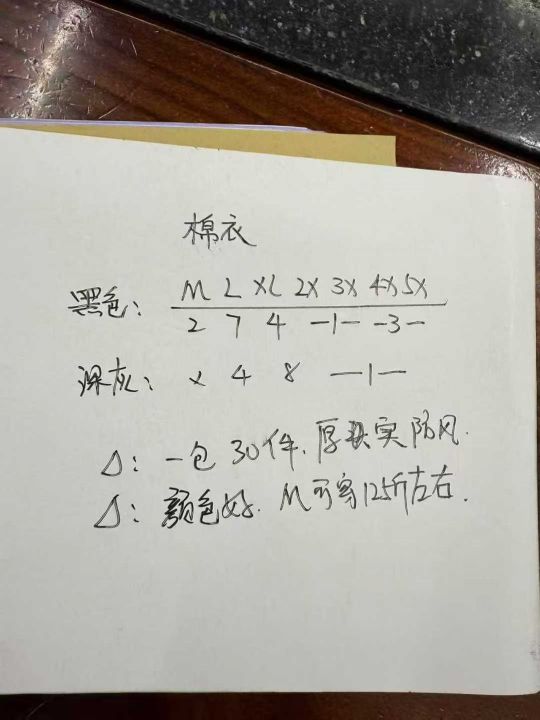 棉衣
M L XL 2X 3X 4X 5X
黑色: 2 7 4 —1— —3—
深灰: x 4 8 —1—
△: 一包30件. 厚实防风.
△: 颜色好. M可穿125斤左右.